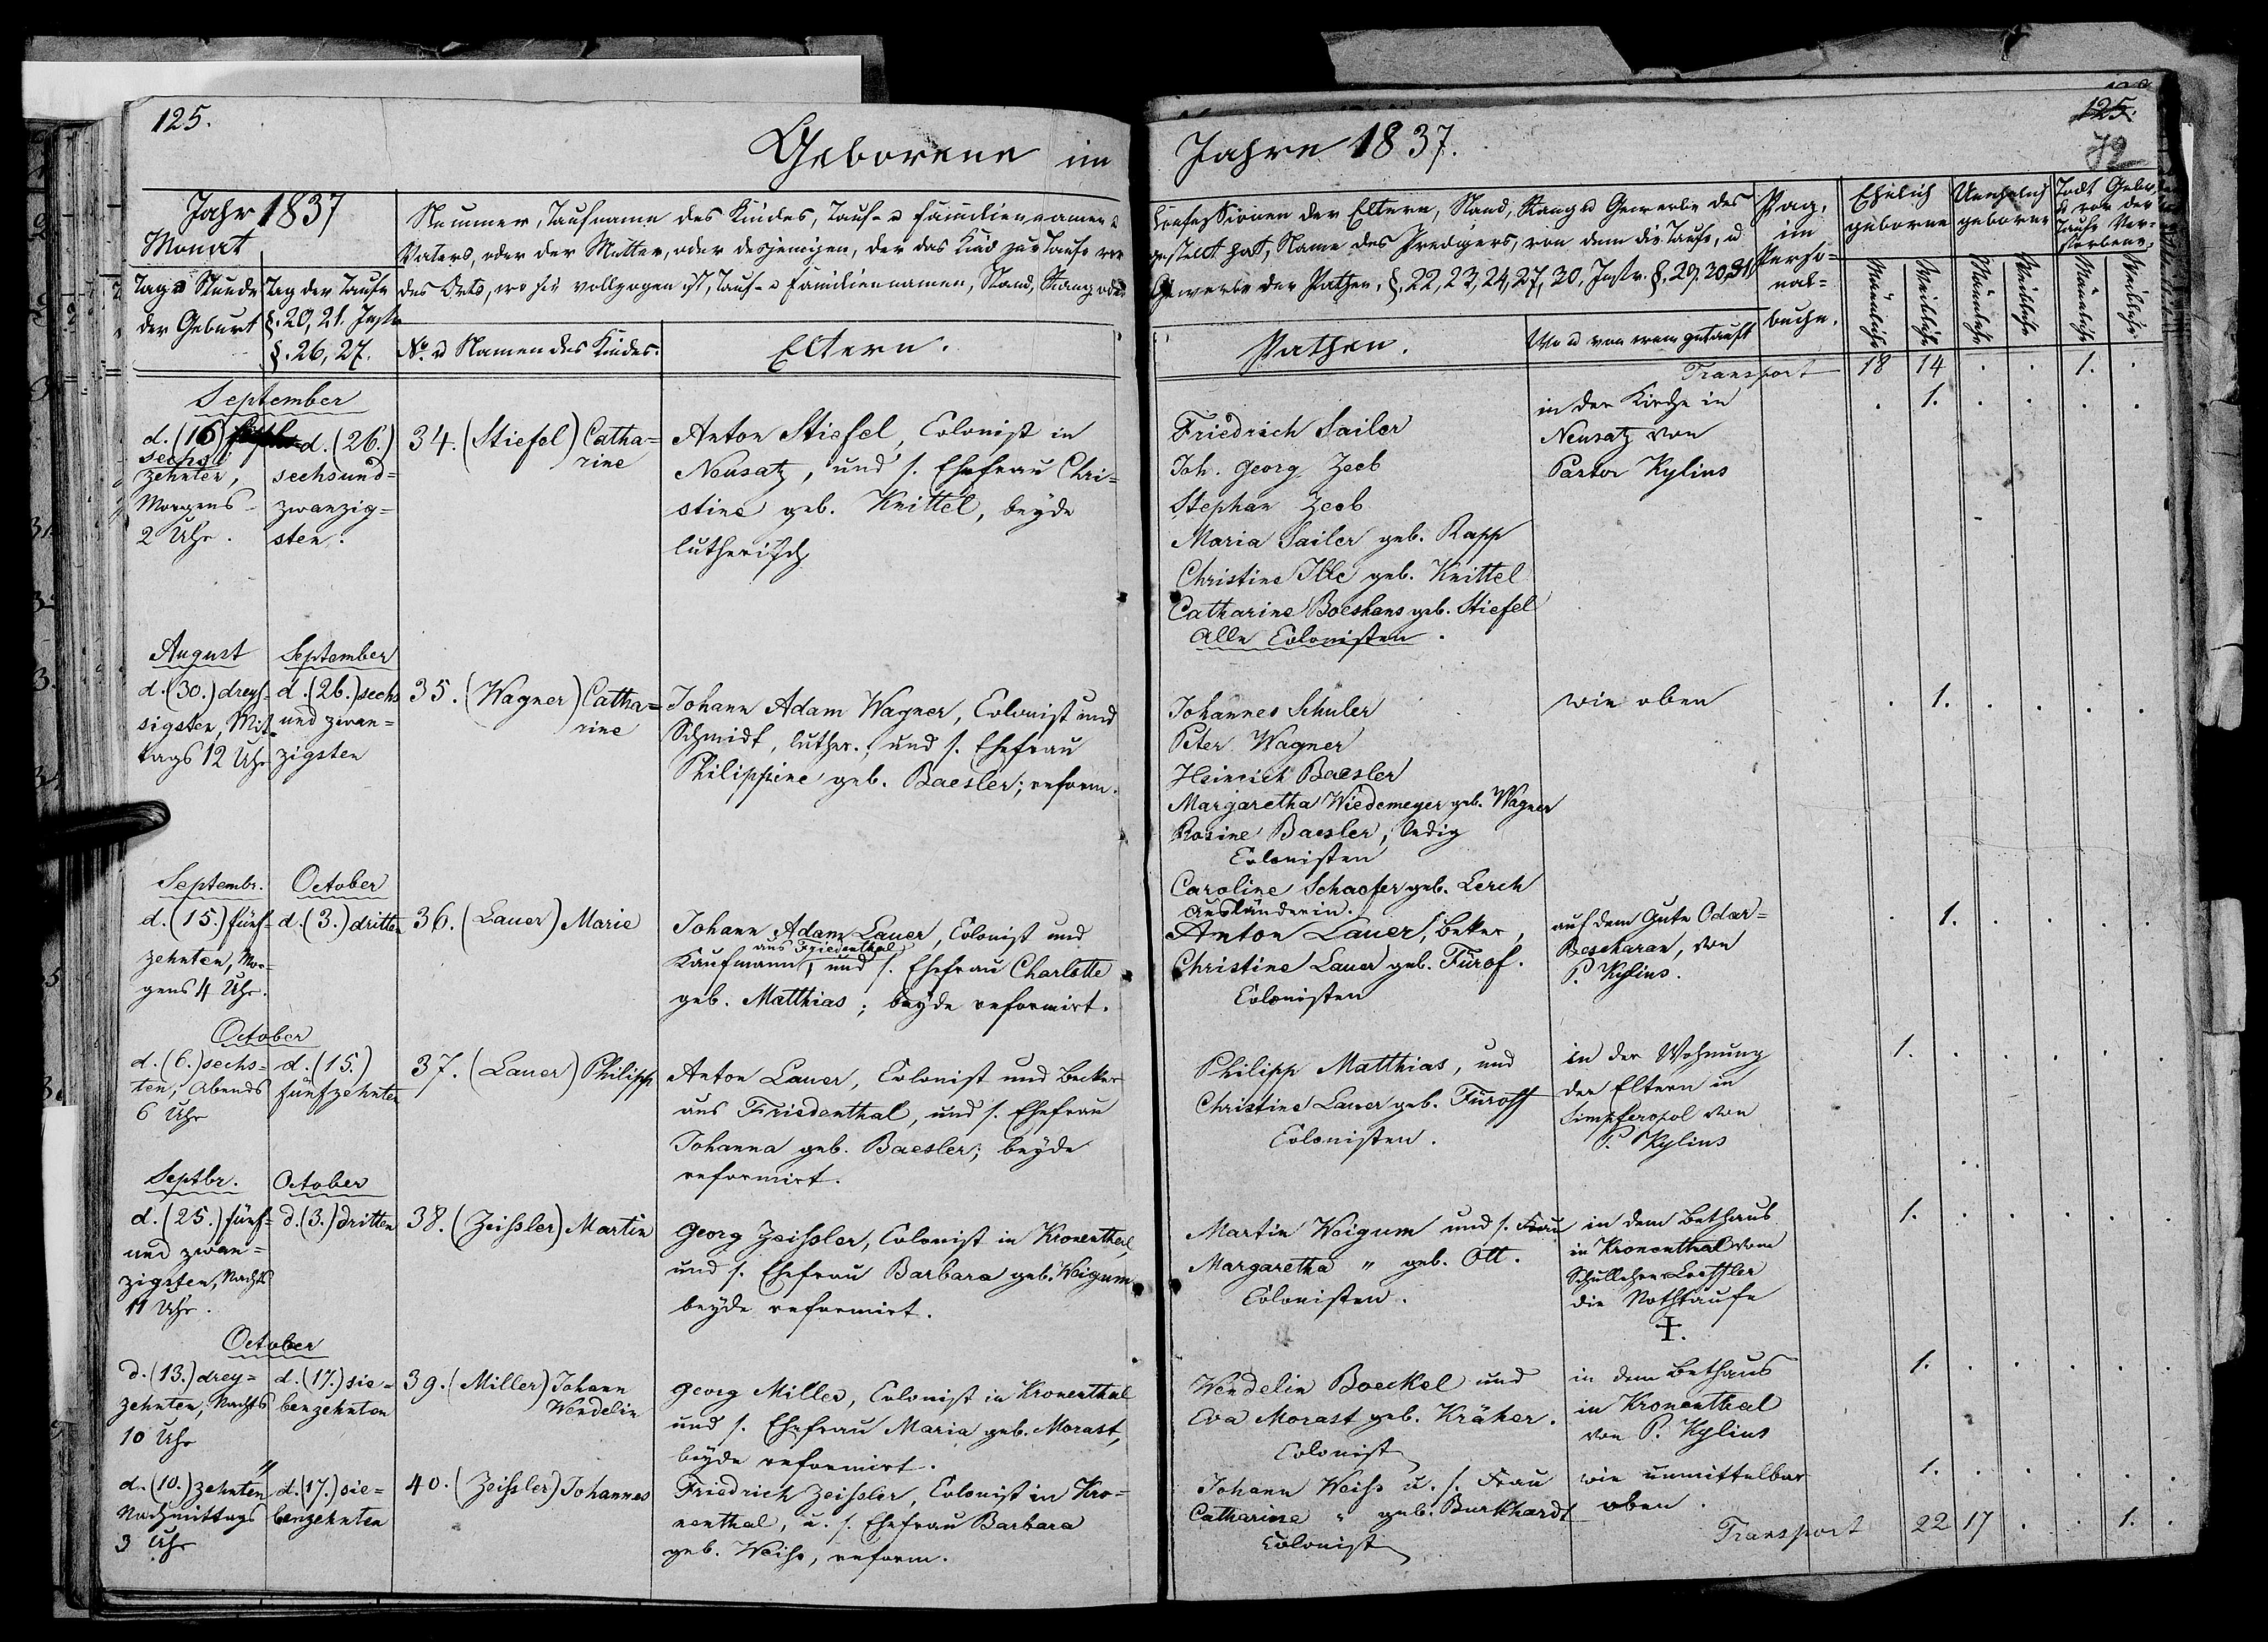 125.
Geborene im
Jahre 1837.
125.
72
Jahr 1837
Monat
Tag u Stunde
der Geburt
Tag der Taufe
§. 20, 21. Instr.
§. 26, 27.
Nummer, Taufname des Kindes, Tauf- u Familiennamen d
Vaters, oder der Mutter, oder desjenigen, der das Kind zur Taufe vor
des Orts, wo sie vollzogen ist, Tauf- u Familiennamen, Stand, Rang oder
No. u Namen des Kindes.
Eltern.
Confessionen der Eltern, Stand, Rang u Gewerbe des
gestellt hat, Name des Predigers, von dem die Taufe, u
Gewerbe der Pathen, §. 22, 23, 24, 27, 30, Instr. §. 29. 30, 31.
Pathen.
Wo u von wem getauft
Pag.
im
Perso-
nal-
buche.
Ehelich
geborene
Unehelich
geborene
Todt Gebor.
u vor der
Taufe Ver-
storbene.
Männliche
Weibliche
Männliche
Weibliche
Männliche
Weibliche
Transport 18 14 . . 1. .
September
d. (16)
sechs
zehnten,
Morgens
2 Uhr.
d. (26.)
sechsund-
zwanzig-
sten.
34. (Stiefel) Catha-
rine
Anton Stiefel, Colonist in
Neusatz, und s. Ehefrau Chri-
stine geb. Knittel, beyde
lutherisch
Friedrich Sailer
Joh. Georg Zeeb
Stephan Zeeb
Maria Sailer geb. Rapp
Christine Ille geb. Knittel
Catharine Boeshans geb. Stiefel
Alle Colonisten.
in der Kirche in
Neusatz von
Pastor Kylius
. 1. . . . .
August
d. (30.) dreys-
sigsten, Mit-
tags 12 Uhr
September
d. (26.) sechs
und zwan-
zigsten
35. (Wagner) Catha-
rine
Johann Adam Wagner, Colonist und
Schmidt, luther.; und s. Ehefrau
Philippine geb. Baesler; reform.
Johannes Schuler
Peter Wagner
Heinrich Baesler
Margaretha Wiedemeyer geb. Wagner
Rosine Baesler, ledig
Colonisten
Caroline Schaefer geb. Lerch
Ausländerin.
wie oben
. 1. . . . .
Septembr.
d. (15.) fünf-
zehnten, Mor-
gens 4 Uhr.
October
d. (3.) dritten
36. (Lauer) Marie
Johann Adam Lauer, Colonist und
aus Friedenthal
Kaufmann, und s. Ehefrau Charlotte
geb. Matthias; beyde reformirt.
Anton Lauer, Beker,
Christine Lauer geb. Fürof.
Colonisten
auf dem Gute Odar-
Bescharan, von
P. Kylius.
. 1. . . . .
October
d. (6.) sechs-
ten, Abends
6 Uhr
d. (15.)
fünfzehnten
37. (Lauer) Philipp
Anton Lauer, Colonist und Becker
aus Friedenthal, und s. Ehefrau
Johanna geb. Baesler; beyde
reformirt.
Philipp Matthias, und
Christine Lauer geb. Füroff
Colonisten.
in der Wohnung
der Eltern in
Simpferopol von
P. Kylius
1. . . . . .
Septbr.
d. (25.) fünf-
und zwan-
zigsten, Nachts
11 Uhr.
October
d. (3.) dritten
38. (Zeißler) Martin
Georg Zeißler, Colonist in Kronenthal,
und s. Ehefrau Barbara geb. Weigum
beyde reformirt.
Martin Weigum und s. Frau
Margaretha " geb. Ott.
Colonisten.
in dem Bethaus
in Kronenthal vom
Schullehrer Loeffler
die Nothtaufe
†.
1. . . . . .
October
d. (13.) drey-
zehnten, Nachts
10 Uhr
d. (17.) sie-
benzehnten
39. (Miller) Johann
Wendelin
Georg Miller, Colonist in Kronenthal
und s. Ehefrau Maria geb. Morast,
beyde reformirt.
Wendelin Boeckel und
Eva Morast geb. Kräher.
Colonist
in dem Bethaus
in Kronenthal
von P. Kylius
1. . . . . .
"
d. (10.) zehnten
Nachmittags
3 Uhr
d. (17.) sie-
benzehnten
40. (Zeißler) Johannes
Friedrich Zeißler, Colonist in Kro-
nenthal, u. s. Ehefrau Barbara
geb. Weiss, reform.
Johann Weiss u. s. Frau
Catharine " geb. Burkhardt
Colonist
wie unmittelbar
oben.
1. . . . . .
Transport 22 17 . . 1. .